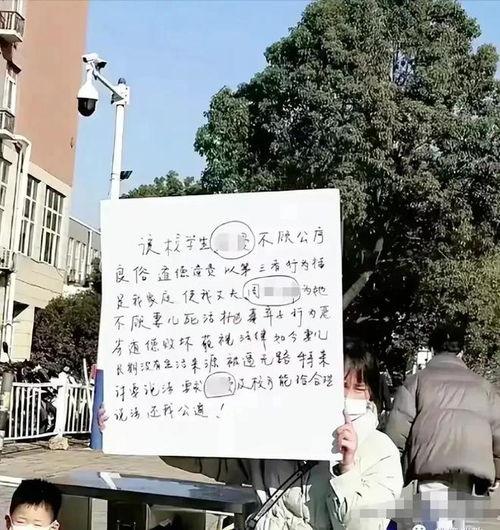 该校学生 不顾公序
良俗 道德 以第三者行为插
足我家庭 使我丈夫 周 为她
不顾妻儿死活抛 弃子行为恶
劣道德败坏 藐视法律 如今妻儿
长期没有生活来源 被逼无路 特来
讨要说法 要求 及校方能给合理
说法还我公道！